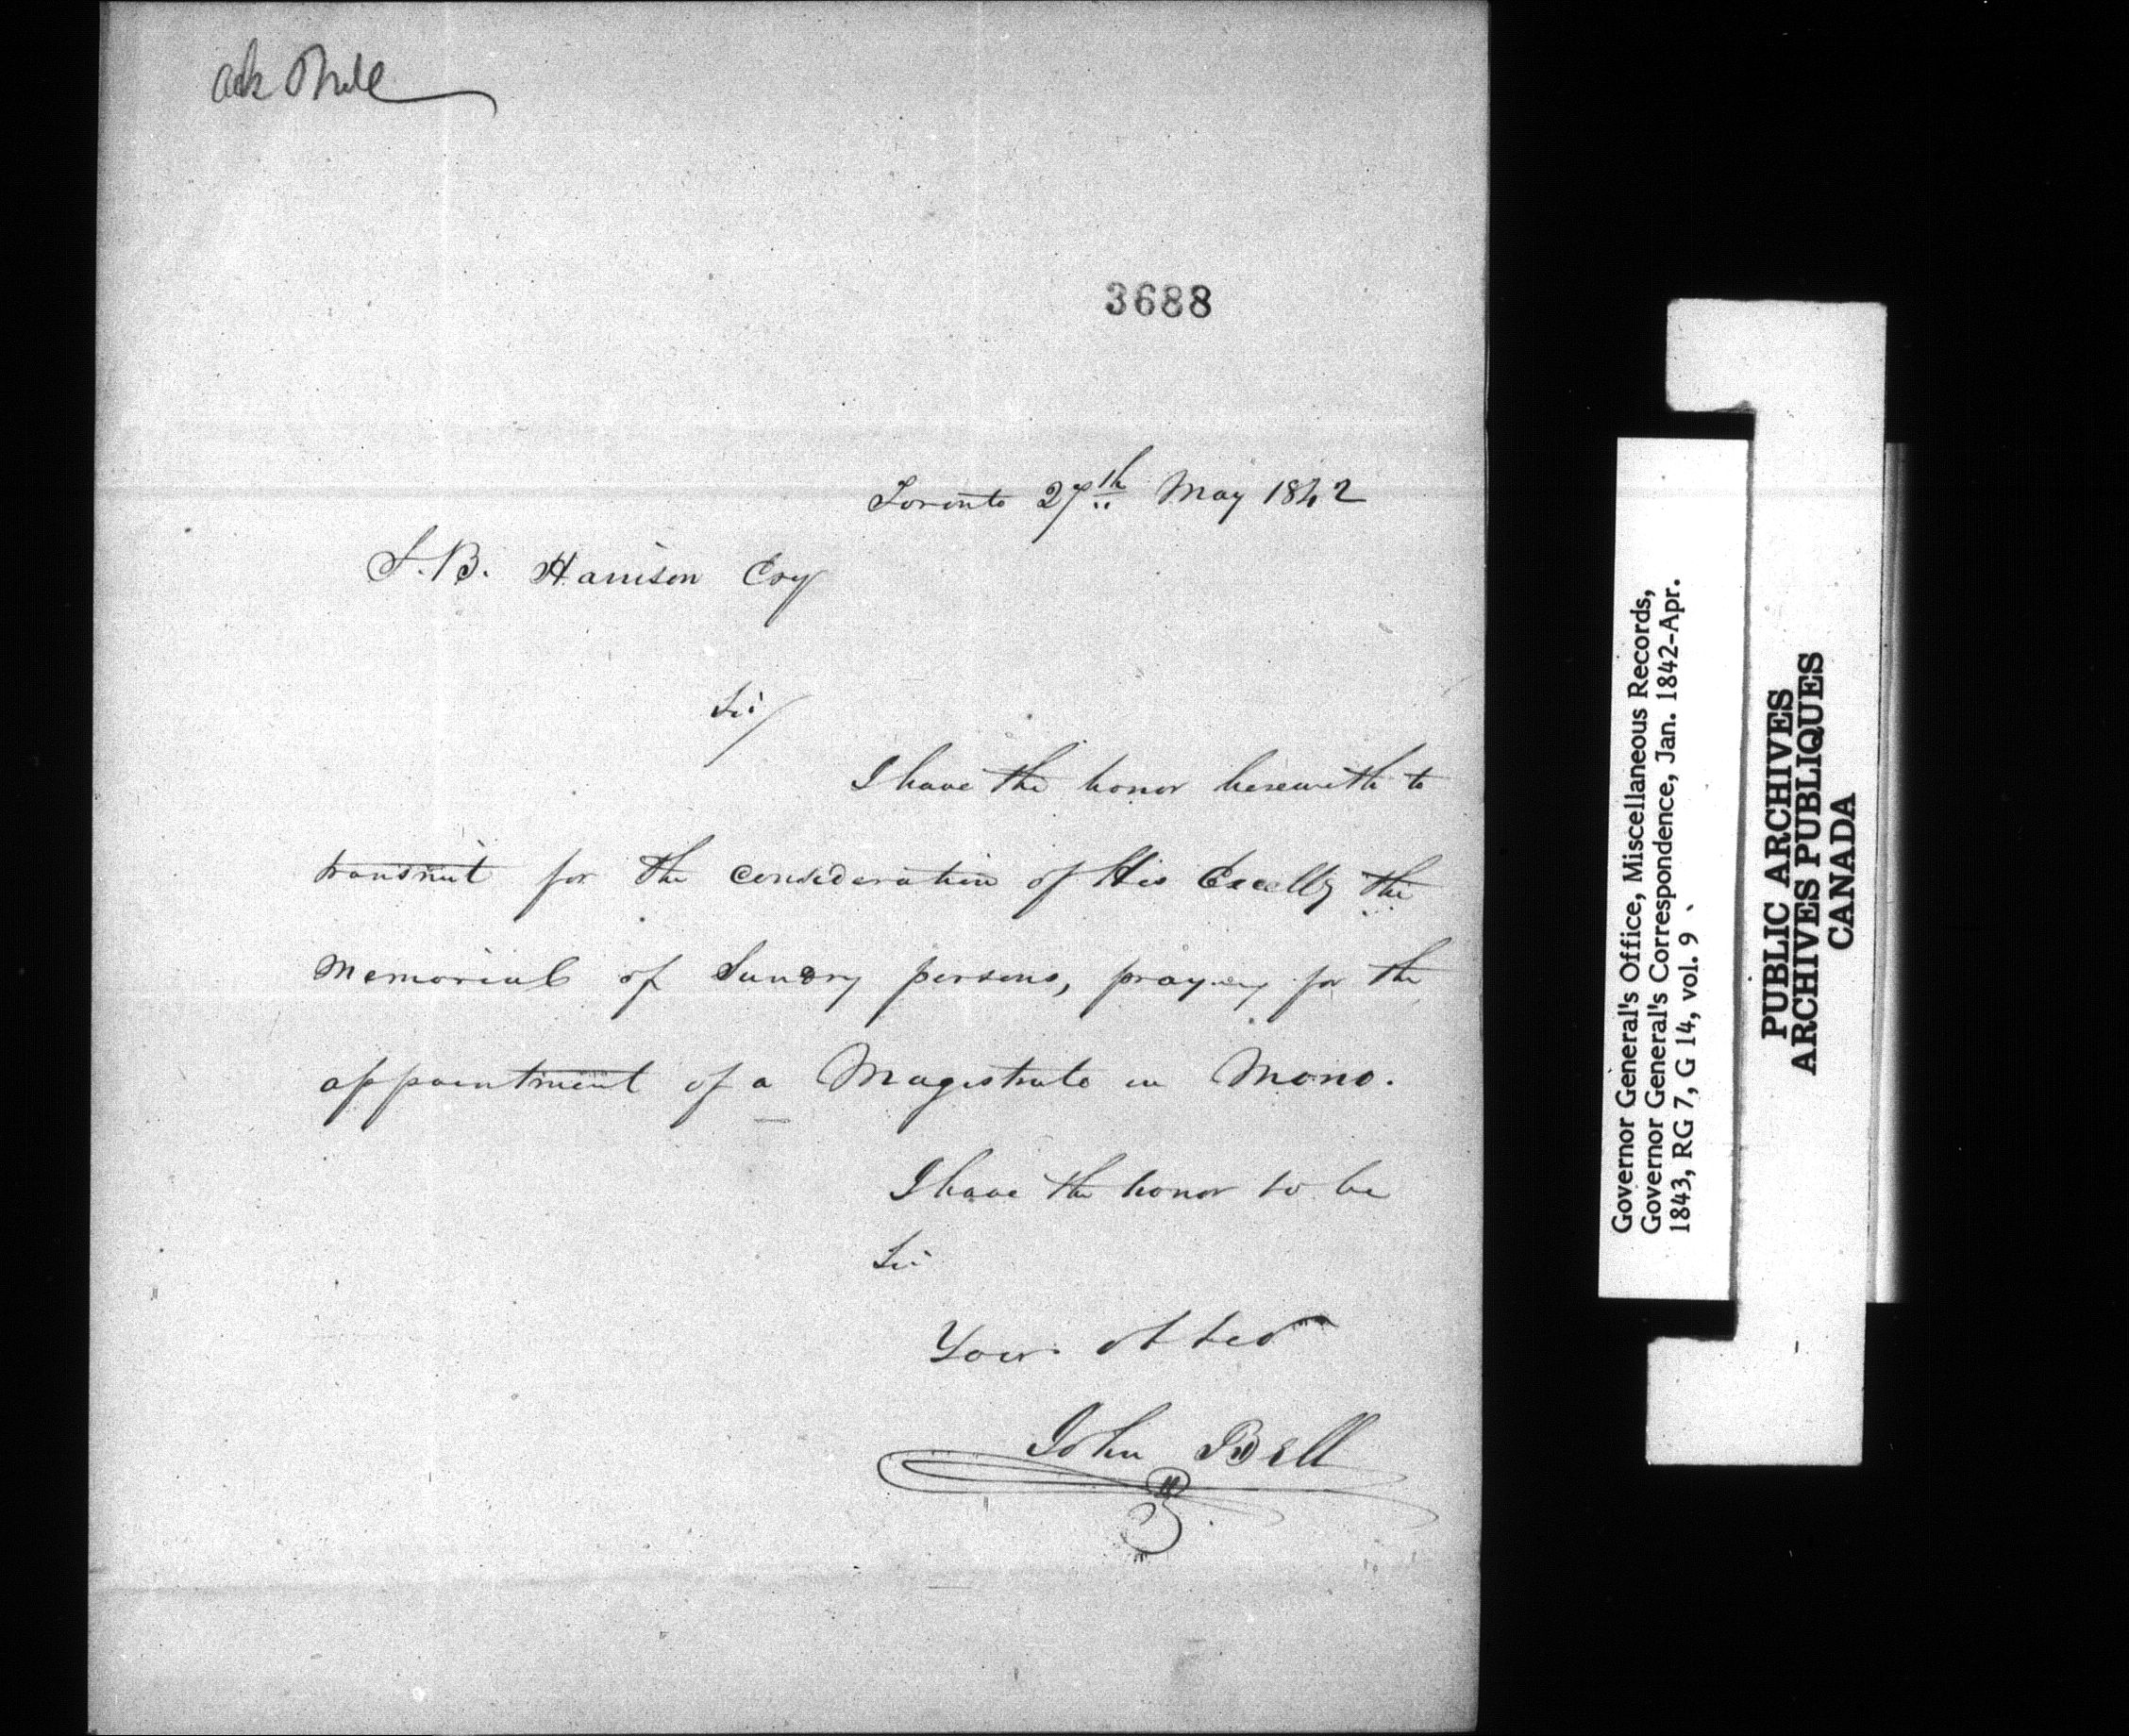 ack
3688
Toronto 27th May 1842
S. B. Harrison Esq
Sir/
I have the honor herewith to
transmit for the consideration of His Excelly the
Memorial of Sundry persons, praying for the
appointment of a Magistrate in Mono.
I have the honor to be
Sir
Your ob
John Bell
Governor General's Office, Miscellaneous Records,
Governor General's Correspondence, Jan. 1842-Apr.
1843, RG 7, G 14, vol. 9
PUBLIC ARCHIVES
ARCHIVES PUBLIQUES
CANADA